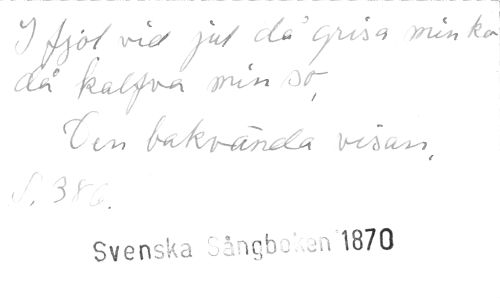 I fjol vid jul då grisa min ko
då kalfva min so,
Den bakvända visan,
S. 386.
Svenska Sångboken 1870